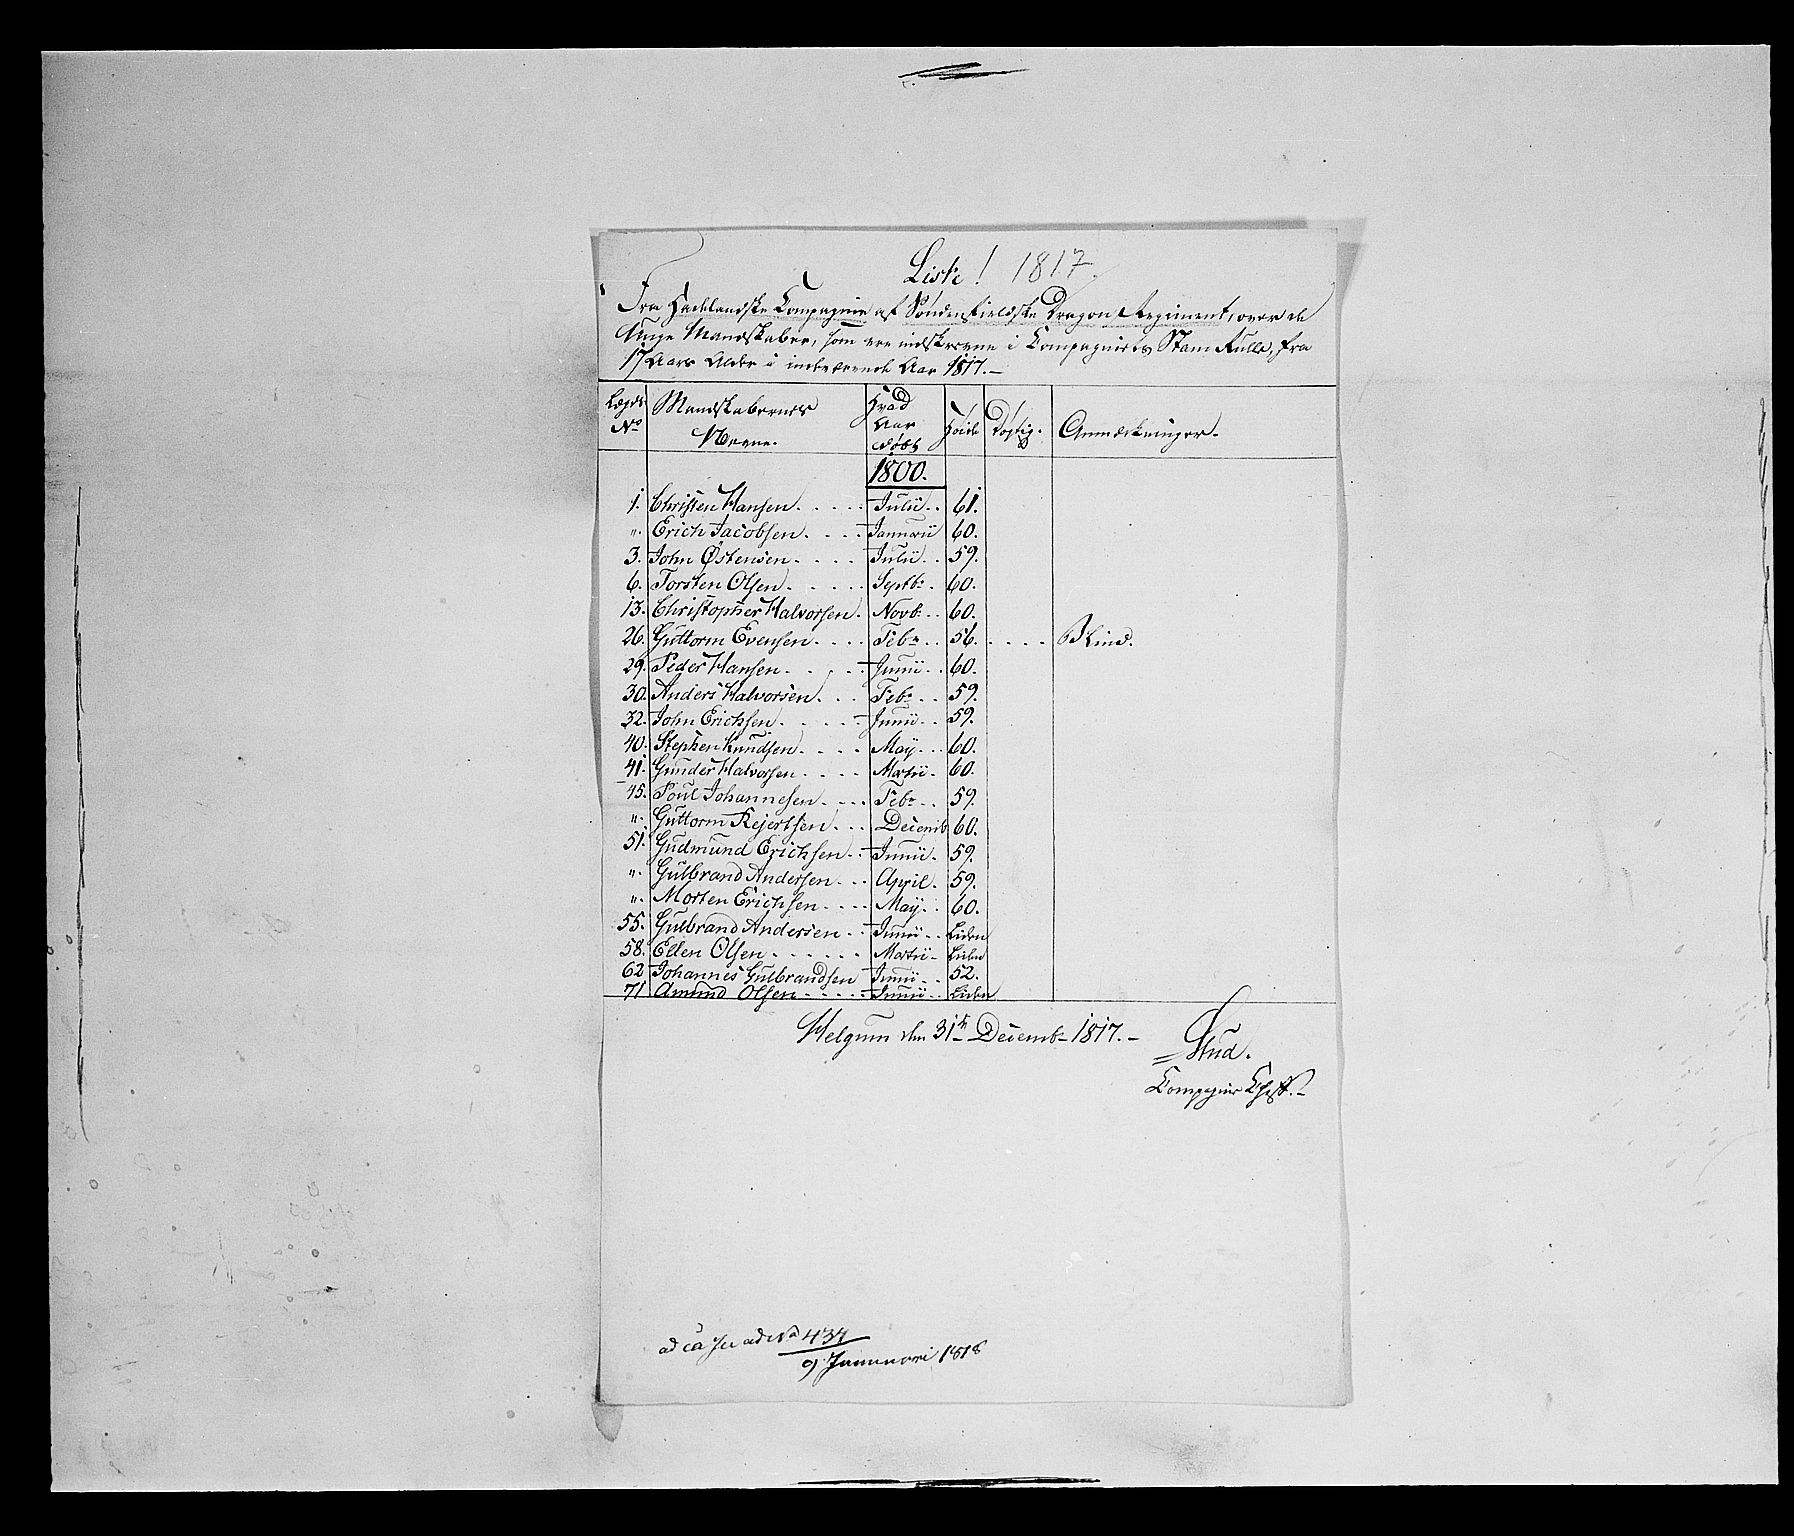 Liste! 1817.
Fra Hadelandske Compagnie af Søndenfieldske Dragon Regiment, over de
Unge Mandskaber, som ere indskrevne i Compagniets Stam Rulle, fra
17 Aars Alder i indeværende Aar 1817.-
Lægds No | Mandskabernes Navne. | Hvad Aar Døbt | Høide | Dygtig. | Anmærkninger.
1800.
1. Christen Hansen. Julii. 61.
". Erich Jacobsen. Januarii 60.
3. John Østensen. Julii. 59.
6. Torsten Olsen. Septbr. 60.
13. Christopher Halvorsen. Novb. 60.
26. Guttorm Evensen. Febr. 56. Blind.
29. Peder Hansen. Junii. 60.
30. Anders Halvorsen. Febr. 59.
32. John Erichsen. Junii. 59.
40. Stephen Knudsen. May. 60.
41. Gunder Halvorsen. Martii. 60.
45. Poul Johannesen. Febr. 59.
". Guttorm Rejertsen. Decemb 60.
51. Gudmund Erichsen. Junii. 59.
". Gulbrand Andersen. April. 59.
". Morten Erichsen. May. 60.
55. Gulbrand Andersen. Junii. Liden
58. Ellen Olsen. Martii. Liden
62 Johannes Gulbrandsen Junii. 52.
71 Amund Olsen. Junii. Liden
Helgum den 31te Decembr 1817.-
Stud.
Compagnie Cheff.-
ad No 434
9 Januari 1818